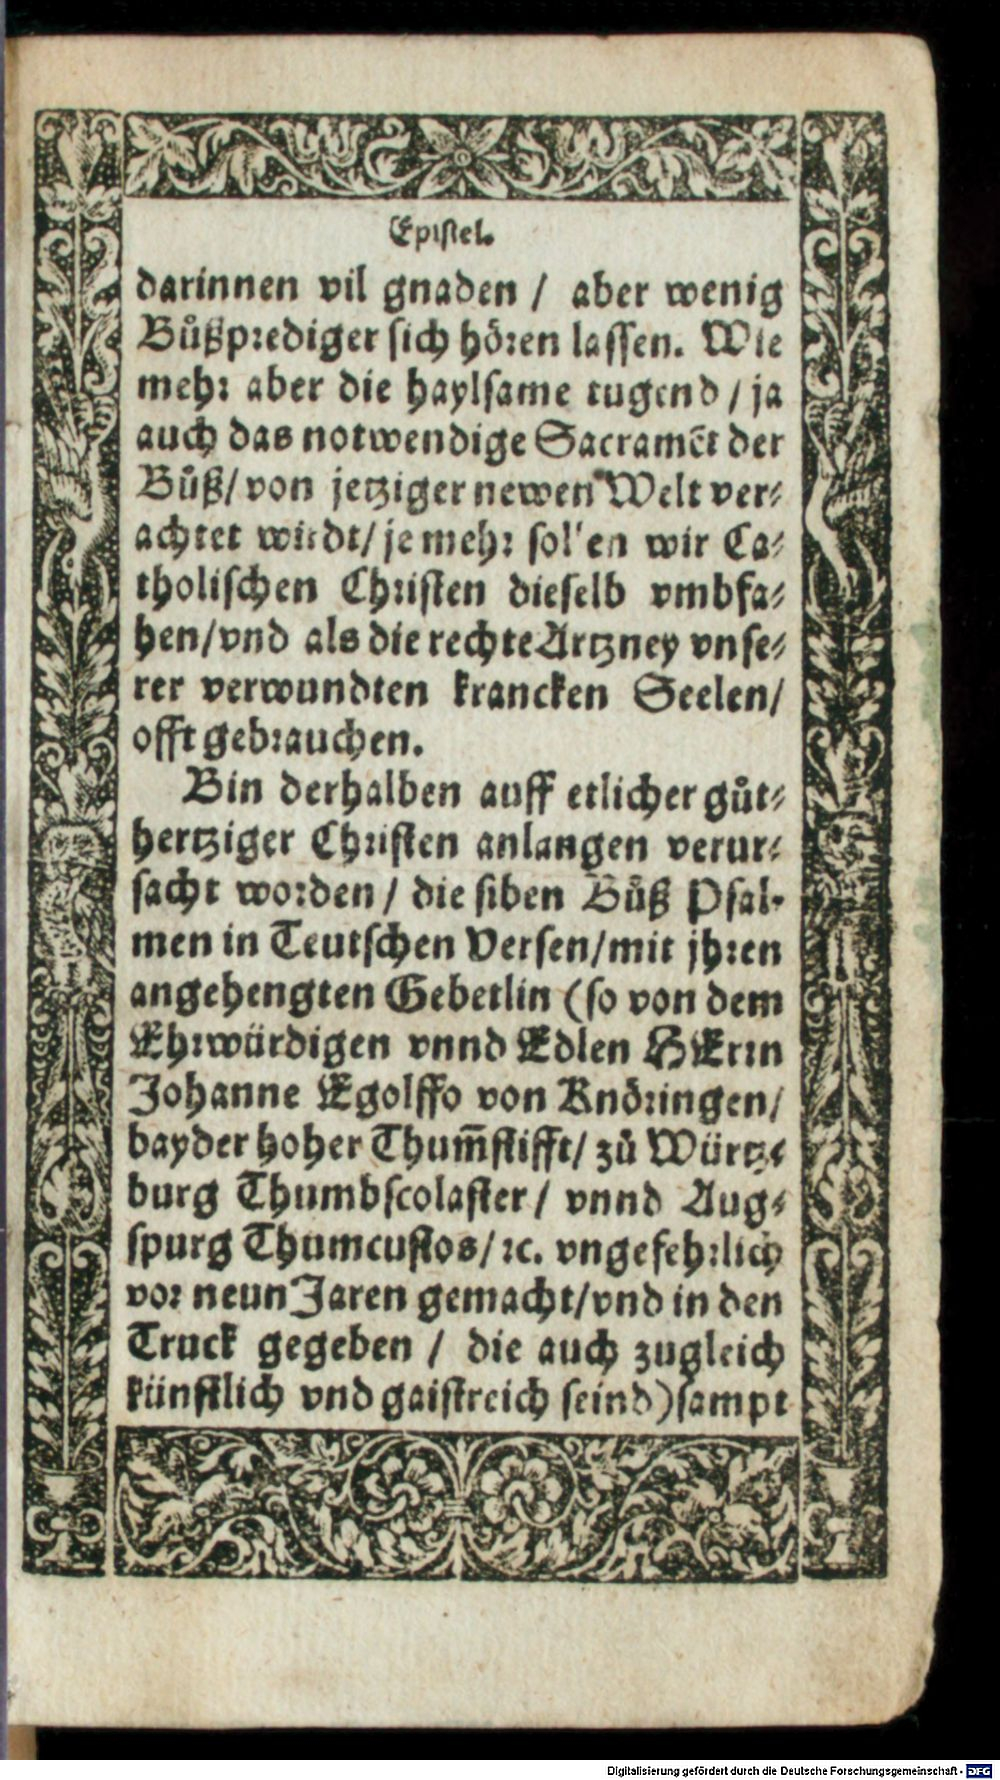 Epistel.
darinnen vil gnaden / aber wenig
Bůßprediger sich hören lassen. Wie
mehr aber die haylsame tugend / ja
auch das notwendige Sacramēt der
Bůß / von jetziger newen Welt ver⸗
achtet wirdt / je mehr sollen wir Ca⸗
tholischen Christen dieselb vmbfa⸗
hen / vnd als die rechte Artzney vnse⸗
rer verwundten krancken Seelen /
offt gebrauchen.
Bin derhalben auff etlicher gůt⸗
hertziger Christen anlangen verur⸗
sacht worden / die siben Bůß Psal⸗
men in Teutschen Versen / mit jhren
angehengten Gebetlin (so von dem
Ehrwürdigen vnnd Edlen HErrn
Johanne Egolffo von Knöringen /
bayder hoher Thum̃stifft / zů Würtz⸗
burg Thumbscolaster / vnnd Aug⸗
spurg Thumcustos / ꝛc. vngefehrlich
vor neun Jaren gemacht / vnd in den
Truck gegeben / die auch zugleich
künstlich vnd gaistreich seind) sampt
Digitalisierung gefördert durch die Deutsche Forschungsgemeinschaft - DFG